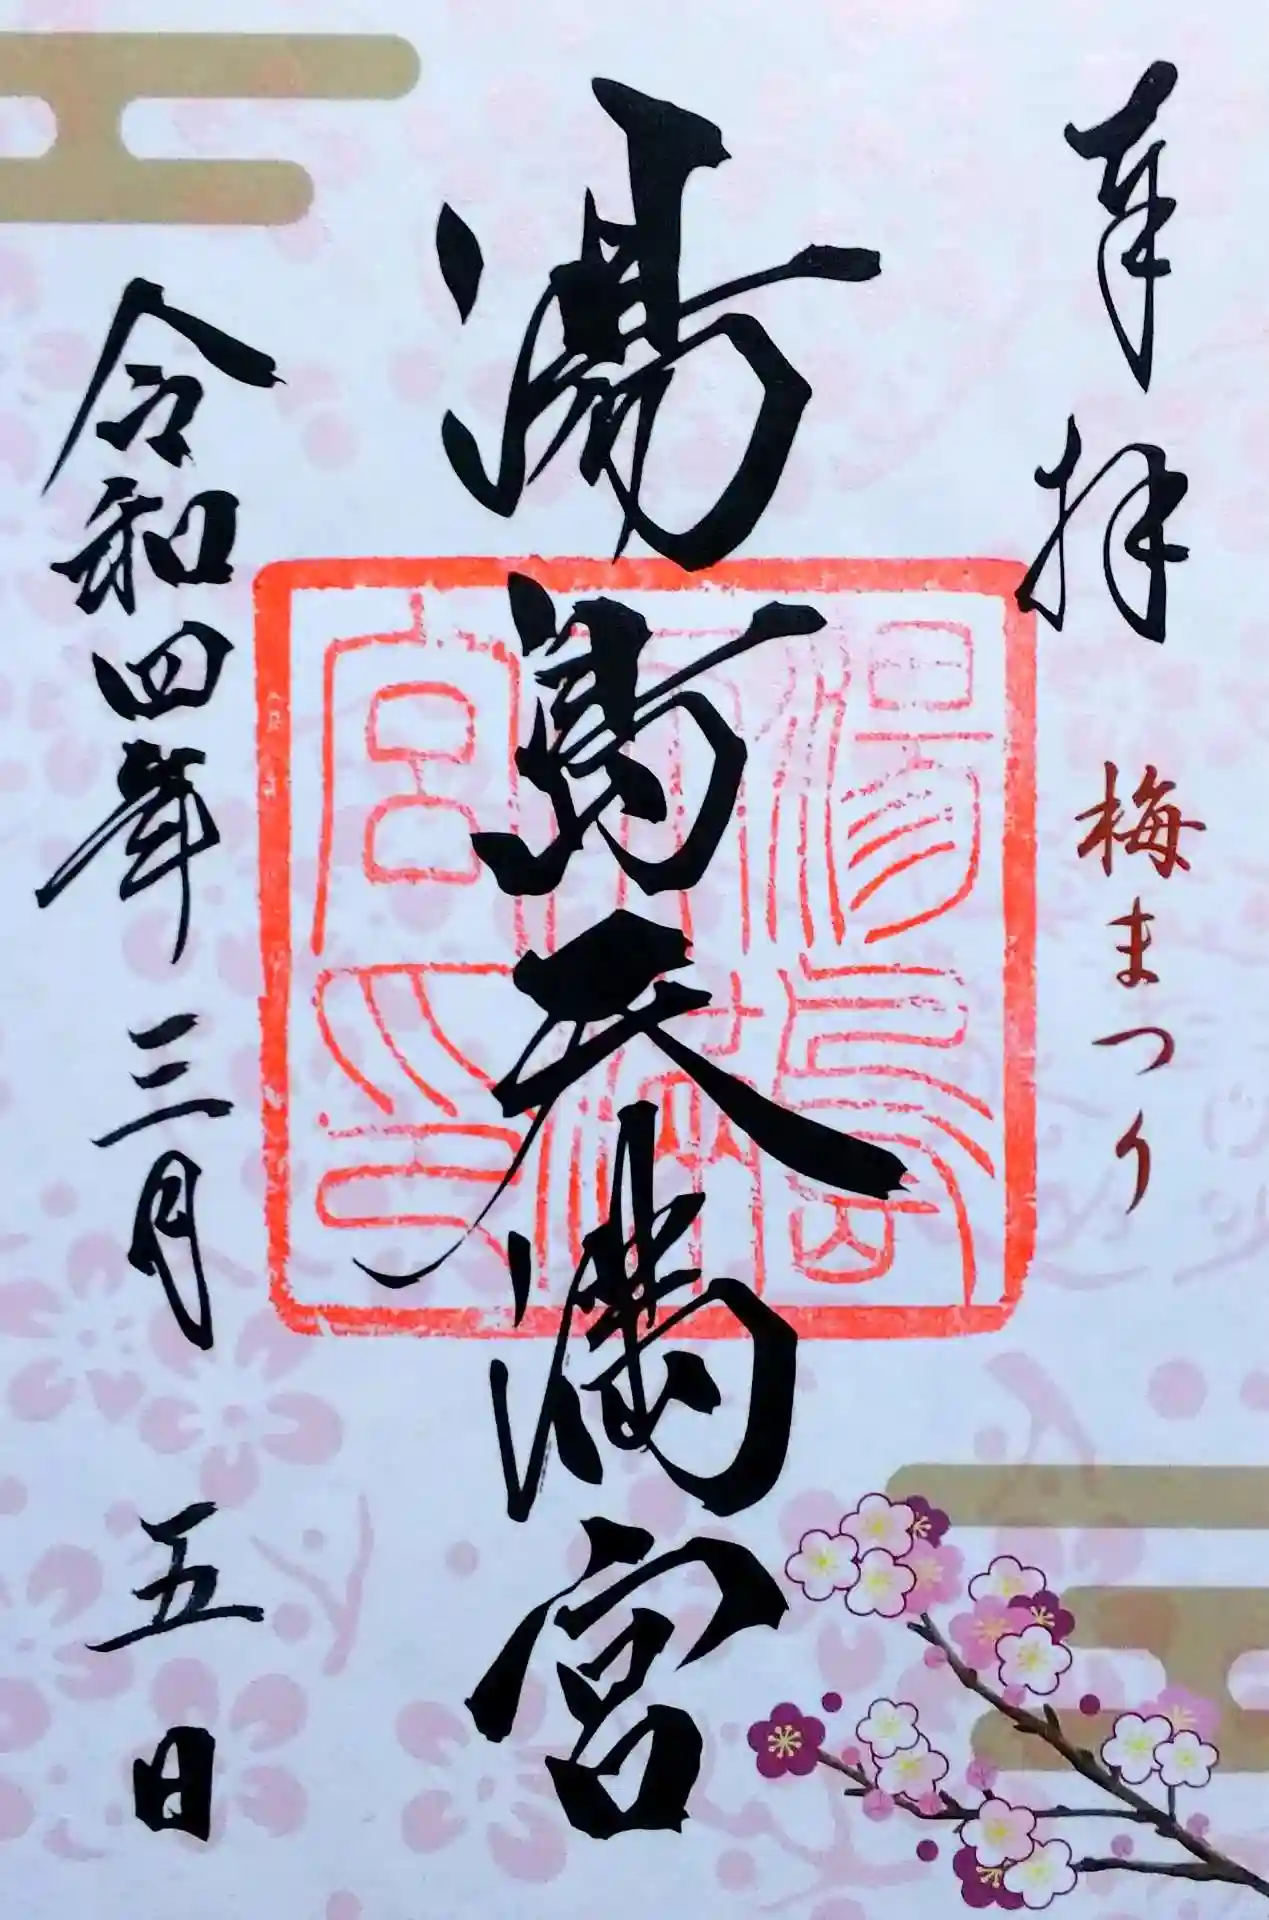 奉拝
梅まつり
湯島天満宮
湯島天満宮印
令和四年三月五日